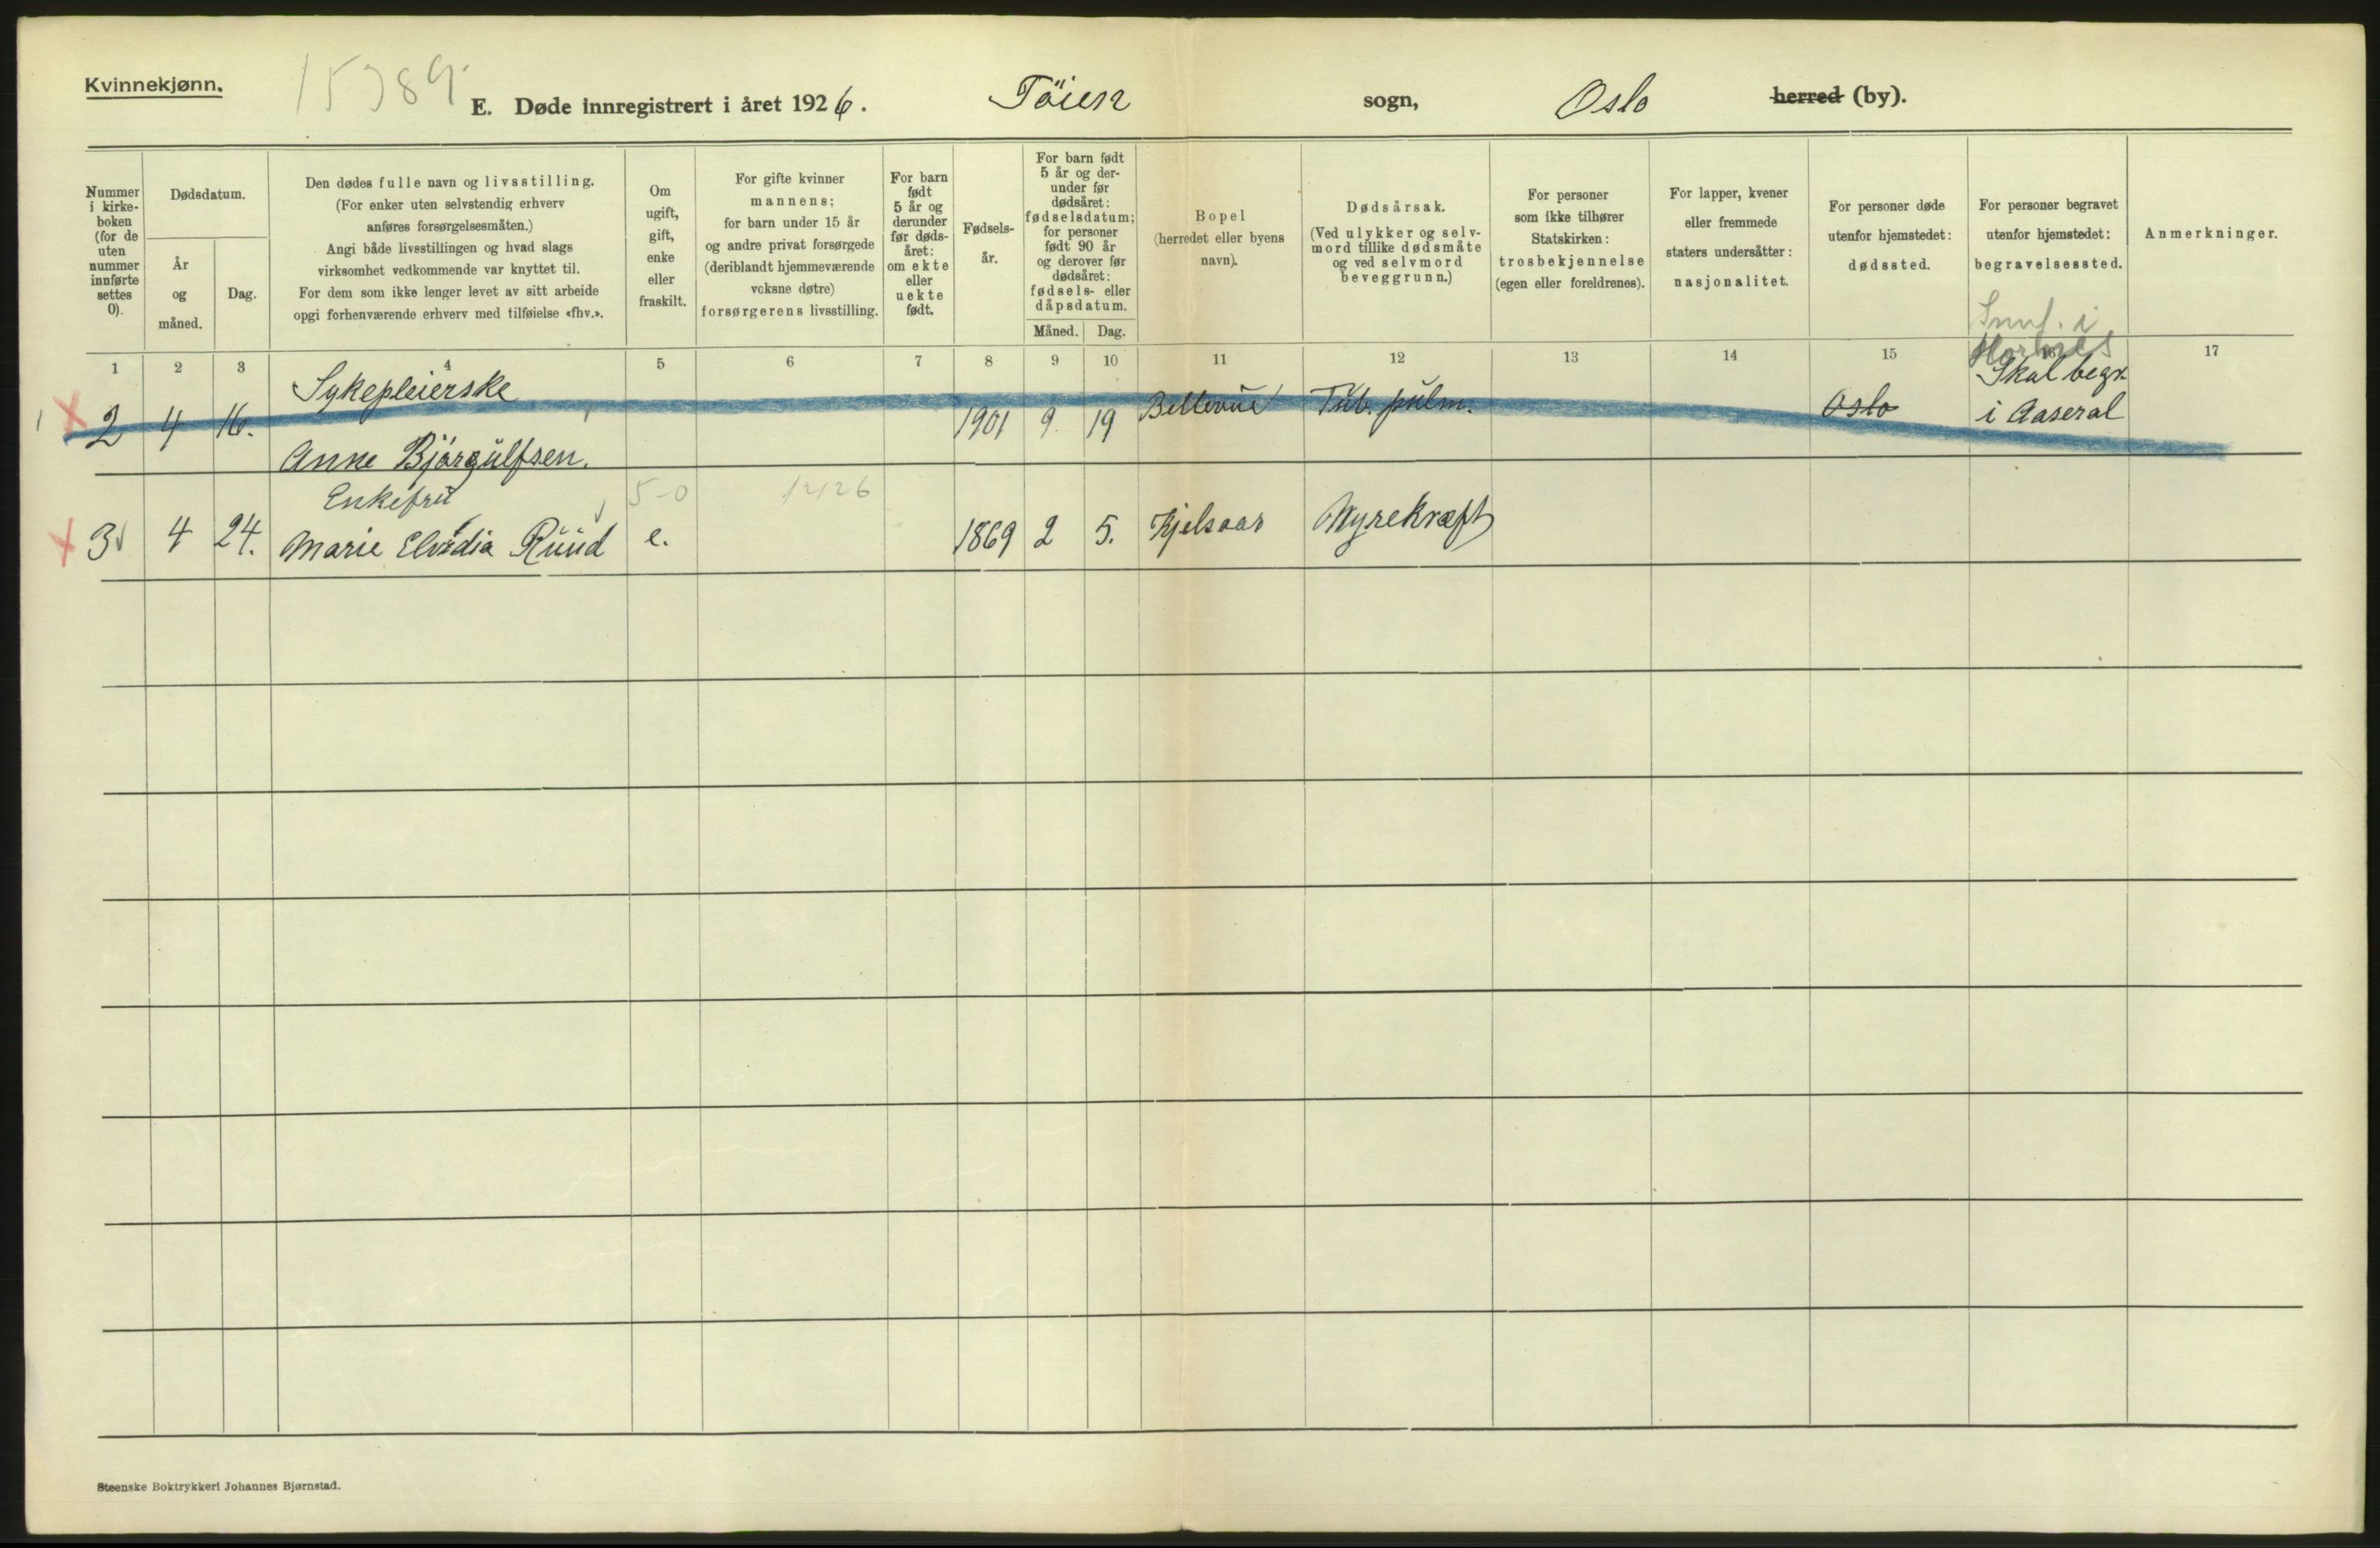 Kvinnekjønn.
15389
E. Døde innregistrert i året 1926. Töien sogn, Oslo herred (by).
Nummer i kirke-boken (for de uten nummer innførte settes 0).
Dødsdatum.
År og måned.
Dag.
Den dødes fulle navn og livsstilling.
(For enker uten selvstendig erhverv
anføres forsørgelsesmåten.)
Angi både livsstillingen og hvad slags
virksomhet vedkommende var knyttet til.
For dem som ikke lenger levet av sitt arbeide
opgi forhenværende erhverv med tilføielse «fhv.».
Om
ugift,
gift,
enke
eller
fraskilt.
For gifte kvinner
mannens;
for barn under 15 år
og andre privat forsørgede
(deriblandt hjemmeværende
voksne døtre)
forsørgerens livsstilling.
For barn
født
5 år og
derunder
før døds-
året:
om ekte
eller
uekte
født.
Fødsels-
år.
For barn født
5 år og der-
under før
dødsåret:
fødselsdatum;
for personer
født 90 år
og derover før
dødsåret:
fødsels- eller
dåpsdatum.
Måned. Dag.
Bopel
(herredet eller byens
navn).
Dødsårsak.
(Ved ulykker og selv-
mord tillike dødsmåte
og ved selvmord
beveggrunn.)
For personer
som ikke tilhører
Statskirken:
trosbekjennelse
(egen eller foreldrenes).
For lapper, kvener
eller fremmede
staters undersåtter:
nasjonalitet.
For personer døde
utenfor hjemstedet:
dødssted.
For personer begravet
utenfor hjemstedet:
begravelsessted.
Anmerkninger.
1 2 3 4 5 6 7 8 9 10 11 12 13 14 15 16 17
i
Sykepleierske
Skal begr.
2 4 16. 1901 9. 19 Bellevue Tub. pulm. Oslo i Aaseral
Anne Bjørgulfsen.
Enkefru 5-0 12126
3 4 24. Marie Elvedia Ruud e. 1869 2 5. Kjelsaas Nyrekræft
Steenske Boktrykkeri Johannes Bjørnstad.